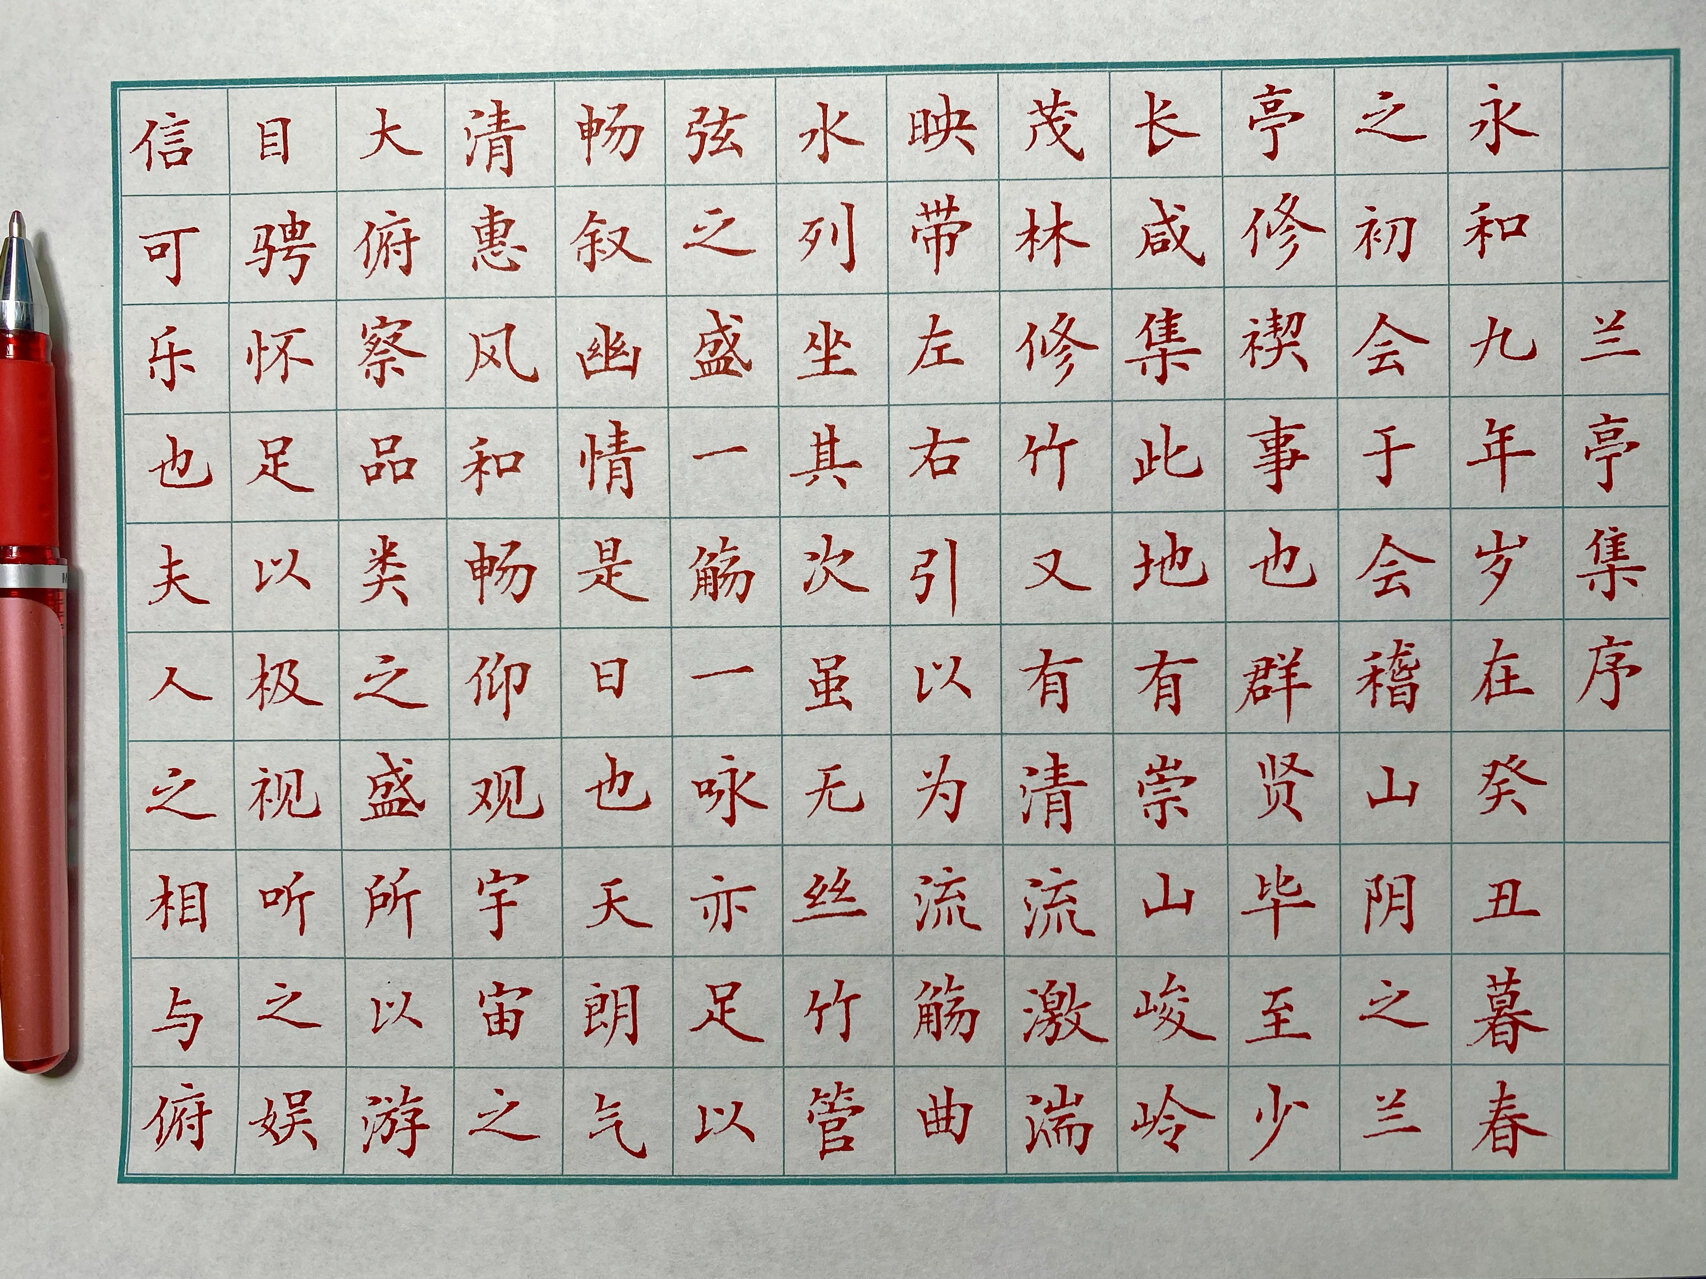 兰亭集序
永和九年岁在癸丑暮春
之初会于会稽山阴之兰
亭修禊事也群贤毕至少
长咸集此地有崇山峻岭
茂林修竹又有清流激湍
映带左右引以为流觞曲
水列坐其次虽无丝竹管
弦之盛一觞一咏亦足以
畅叙幽情是日也天朗气
清惠风和畅仰观宇宙之
大俯察品类之盛所以游
目骋怀足以极视听之娱
信可乐也夫人之相与俯